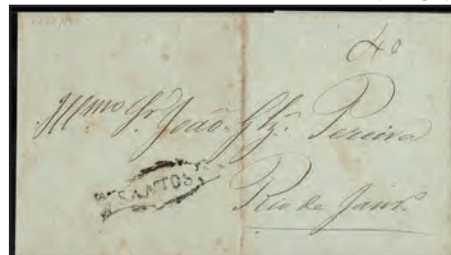 40
Illmo Sr. João Glz. Pereira
SANTOS
Rio de Janro.